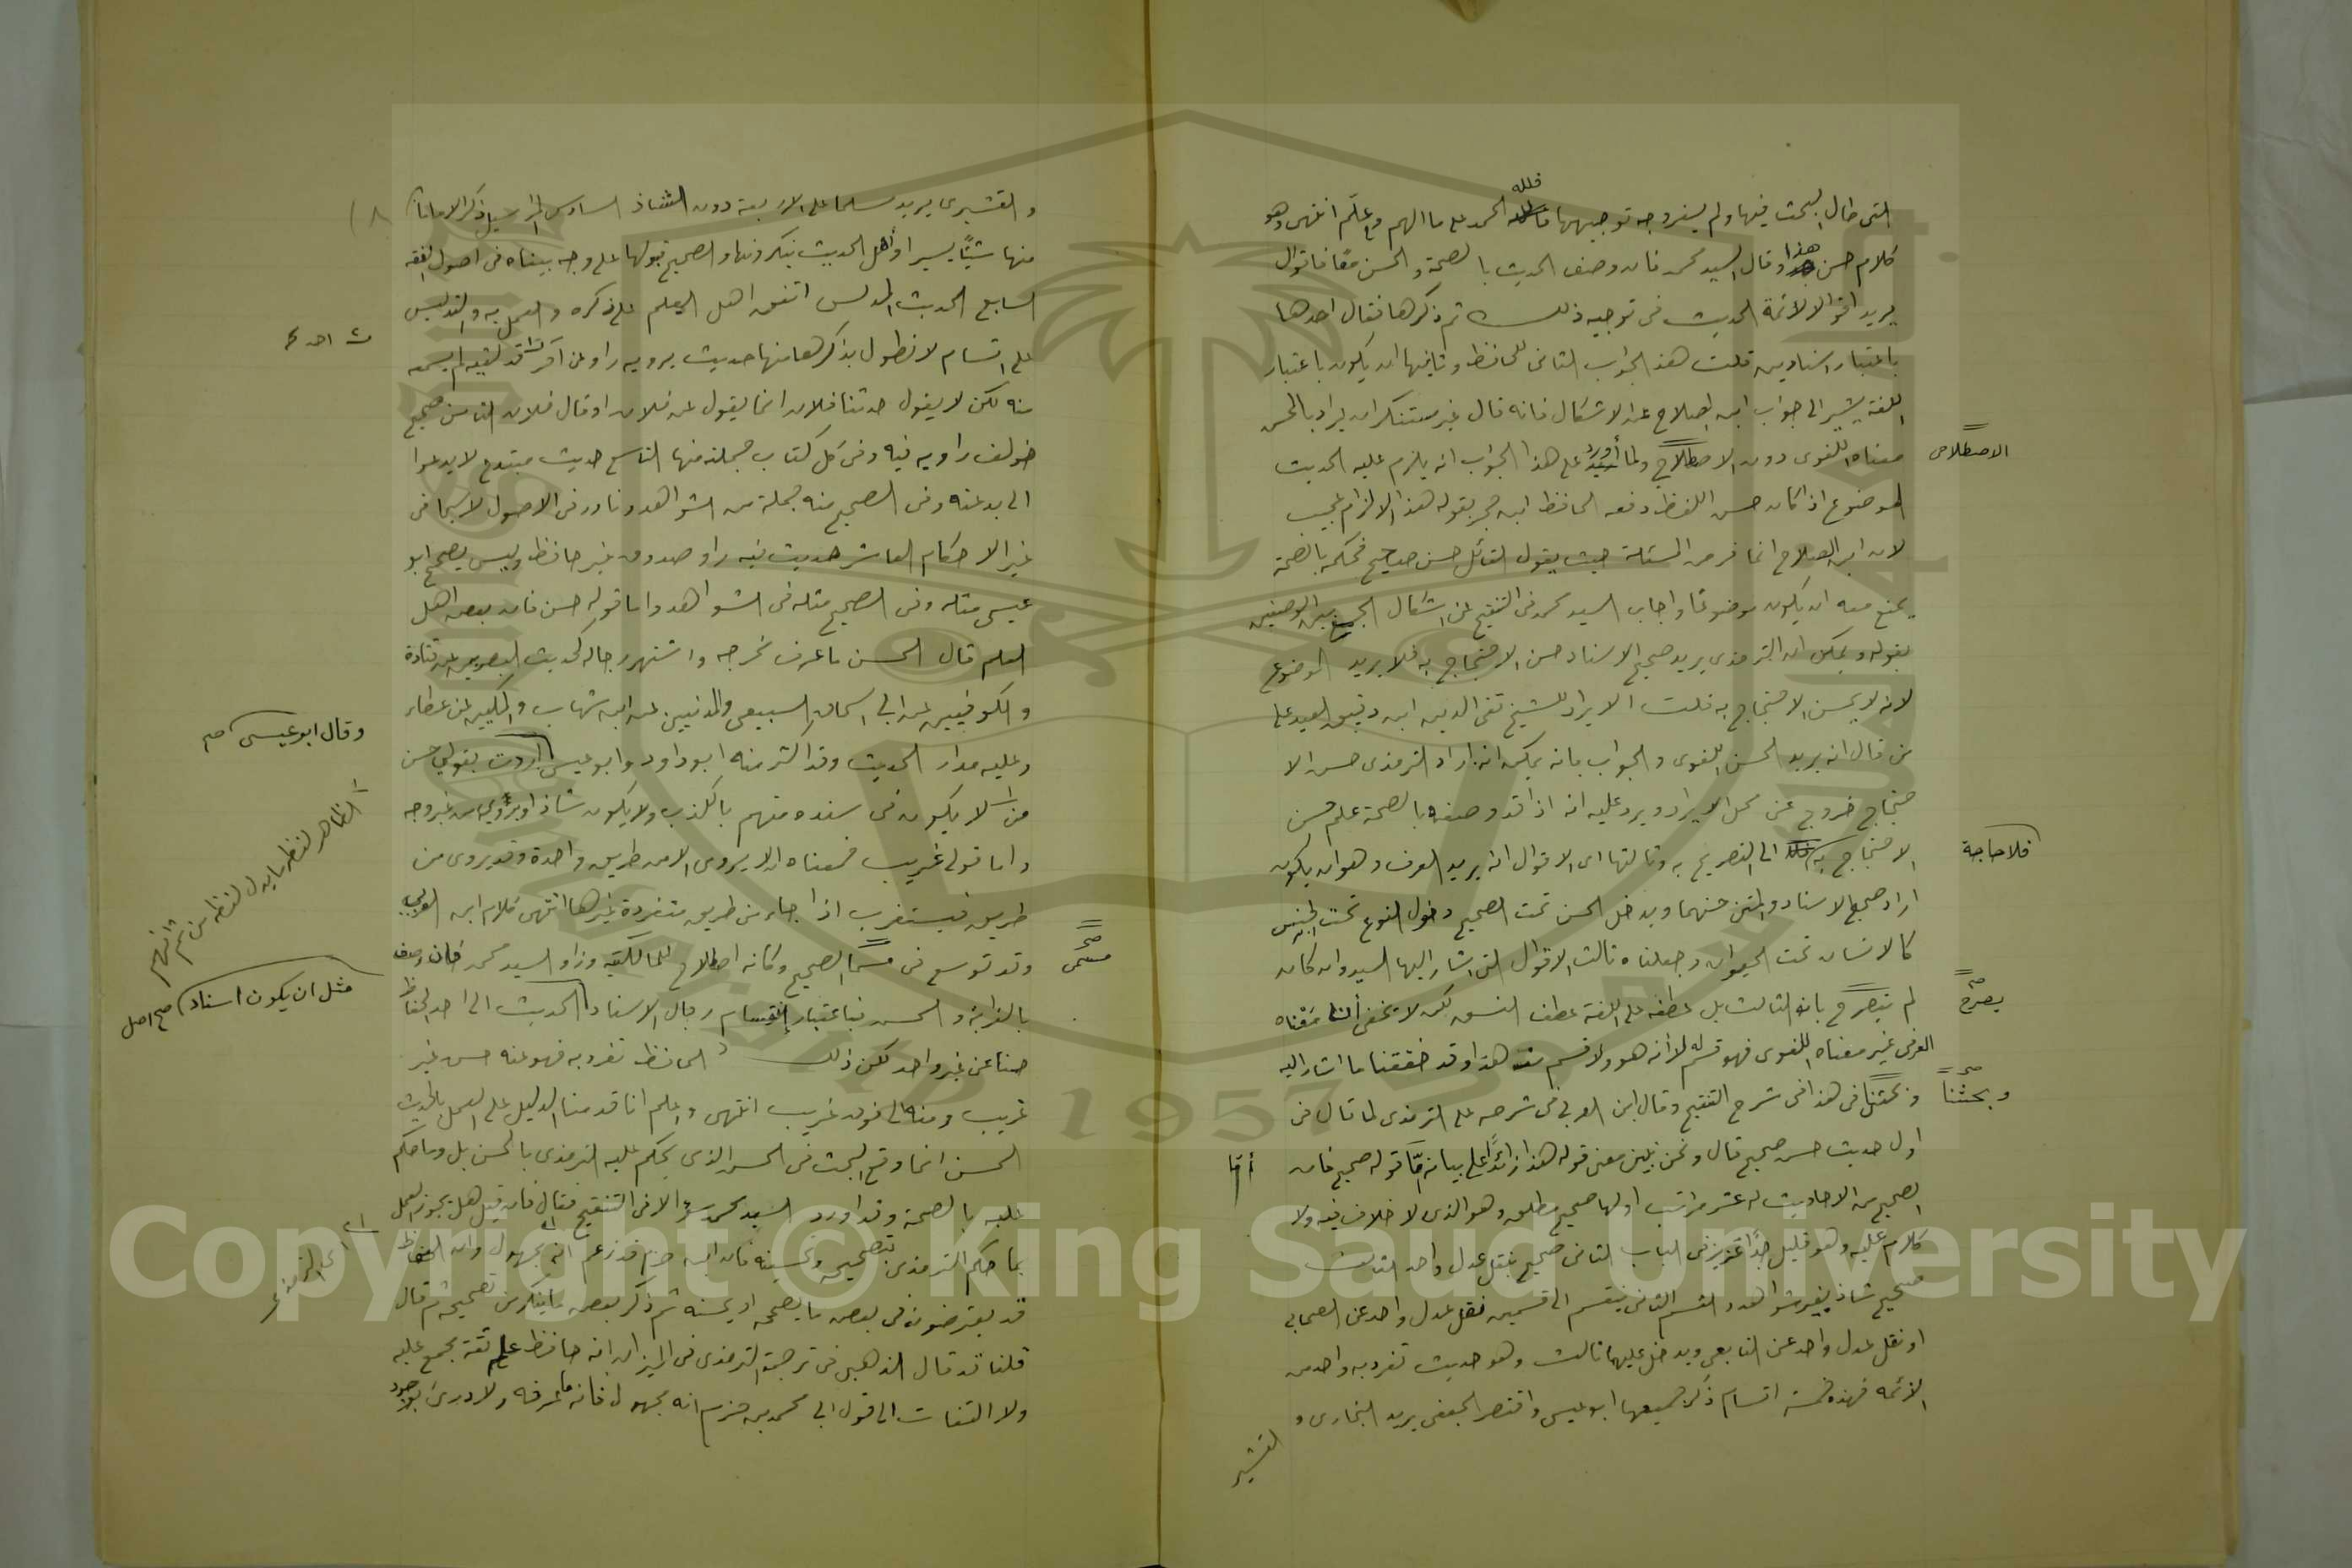 التى طال البحث فيها ولم يسفر وجه توجيهها فلله الحمد على ما الهم وعلّم انتهى وهو
كلام حسن هذا وقال السيد محمد فان وصف الحديث بالصحة والحسن معًا فاقوال
يريد اقوالا لائمة الحديث فى توجيه ذلك ثم ذكرها فقال احدها
باعتبار اسنادين قلت هذ الجواب الثانى للحافظ وثانيها ان يكون باعتبار
اللغة يشير الى جواب ابن الصلاح عن الاشكال فانه قال غير مستنكر ان يراد بالحسن
معناه اللغوى دون الاصطلاحى ولما أورد على هذا الجواب انه يلزم عليه الحديث
الاصطلاحى
الموضوع اذا كان حسن اللفظ دفعه الحافظ ابن حجر بقوله هذ الالزام عجيب
لان ابن الصلاح انما فرض المسئلة حيث يقول القائل حسن صحيح فحكمه بالصحة
يمنع معه ان يكون موضوعًا واجاب السيد محمد فى التنقيح عن اشكال الجمع بين الوصفين
بقوله ويمكن ان الترمذى يريد صحيح الاسناد حسن الاحتجاج به فلا يريد الموضوع
لانه لا يحسن الاحتجاج به قلت الايراد للشيخ تقى الدين ابن دقيق العيد على
من قال انه يريد الحسن اللغوى والجواب بانه يمكن انه اراد الترمذى حسن الا
حتجاج خروج عن محل الايراد ويرد عليه انه اذا قد وصفه بالصحة علم حسن
الاحتجاج به الى التصريح به وثالثها اى الاقوال انه يريد العرف وهو ان يكون
فلا حاجة
اراد صحيح الاسناد والمتن حسنهما ويدخل الحسن تحت الصحيح دخول النوع تحت الجنس
كالانسان تحت الحيوان وجعلناه ثالث الاقوال التى اشار اليها السيد وان كان
لم يصرح بانه الثالث بل عطفه على اللغة عطف النسق لكن لا يخفى أن معناه
يصرح صح
العرفى غير معناه اللغوى فهو قسم له لا انه هو ولا قسم منه هذا وقد حققنا ما اشار اليه
وبحثنا فى هذا فى شرح التنقيح وقال ابن العربى فى شرحه على الترمذى لما قال فى
وبحثنا صح
اول حديث حسن صحيح قال ونحن نبين معنى قوله هذا زائدًا على بيانه أمّا قوله صحيح فان
أمّا
الصحيح من الاحاديث له عشر مراتب اولها صحيح مطلق وهو الذى لا خلاف فيه ولا
كلام عليه وهو قليل جدًّا عزيز فى الباب الثانى صحيح بنقل عدل واحد الثالث
صحيح شاذ بغير شواهد والقسم الثانى ينقسم الى قسمين نقل عدل واحد عن الصحابى
او نقل عدل واحد عن التابعى ويدخل عليهما ثالث وهو حديث تفرد به واحد من
الائمه فهذه خمسة اقسام ذكر جميعها ابو عيسى واقتصر الجعفى يريد البخارى و
القشيرى
والقشيرى يريد مسلما على الاربعة دون الشاذ السادس المراسيل ذكر الامامان
٨
منها شيئًا يسيرا وأهل الحديث ينكرونها والصحيح قبولها على وجه بيناه فى اصول الفقه
السابع الحديث المدلس اتفق اهل العلم على ذكره والعمل به والتدليس
على اقسام لا نطول بذكرها منها حديث يرويه راو عن آخر قد لقيه لم يسمعه
منه لكن لا يقول حدثنا فلان انما يقول عن فلان او قال فلان الثامن صحيح
خولف راويه فيه وفى كل كتاب جملة منها التاسع حديث مبتدع لا يدعوا
الى بدعته وفى الصحيح منه جملة من الشواهد ونادر فى الاصول لا سيما فى
غير الاحكام العاشر حديث فيه راو صدوق غير حافظ وليس يصحح ابو
عيسى مثله وفى الصحيح مثله فى الشواهد واما قوله حسن فان بعض اهل
العلم قال الحسن ما عرف مخرجه واشتهر رجاله كحديث البصريين عن قتادة
والكوفيين عن ابى اسحاق السبيعى والمدنيين عن ابن شهاب والمكيين عن عطاء
وعليه مدار الحديث وقد اكثر منه ابو داود وابو عيسى اردت بقولى حسن
وقال ابو عيسى صح
من لا يكون فى سنده متهم بالكذب ولا يكون شاذ او يروى من غير وجه
الظاهر لفظ ما بدل لفظ من ثم
واما قوله غريب فمعناه ان لا يروى الا من طريق واحدة وقد يروى من
طريق فيستغرب اذا جاء من طريق متفردة غيرها انتهى كلام ابن العربى
وقد توسع فى مسمى الصحيح وكانه اصطلاح للمالكية وزاد السيد محمد فان وصف
مسمى صح
بالغرابة والحسن فباعتبار انقسام رجال الاسناد الحديث الى احد الحفاظ
مثل ان يكون اسناد صح اصل
حسنا عن غير واحد لكن ذلك الحافظ تفرد به فهو عنه حسن غير
غريب ومنه الى فوق غريب انتهى واعلم انا قدمنا الدليل على العمل بالحديث
الحسن انما وقع البحث فى الحسن الذى يحكم عليه الترمذى بالحسن بل وما حكم
عليه بالصحة وقد اورد السيد محمد سؤالا فى التنقيح فقال فان قيل هل يجوز العمل
بما حكم الترمذى بتصحيحه وتحسينه فان ابن حزم قد زعم انه مجهول وان الحفاظ
اى الترمذى
قد يعترضون فى بعض ما يصححه او يحسنه ثم ذكر بعض ما ينكر من تصحيحه ثم قال
قلنا قد قال الذهبى فى ترجمة الترمذى فى الميزان انه حافظ علم ثقة مجمع عليه
ولا التفات الى قول ابى محمد بن حزم انه مجهول فانه ما عرفه ولا درى بوجود
Copyright © King Saud University
1957